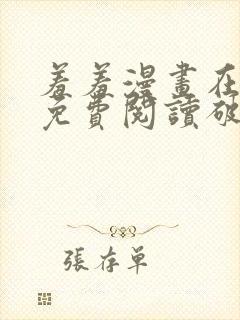 羞羞漫畫在
免費閱讀破
張存單